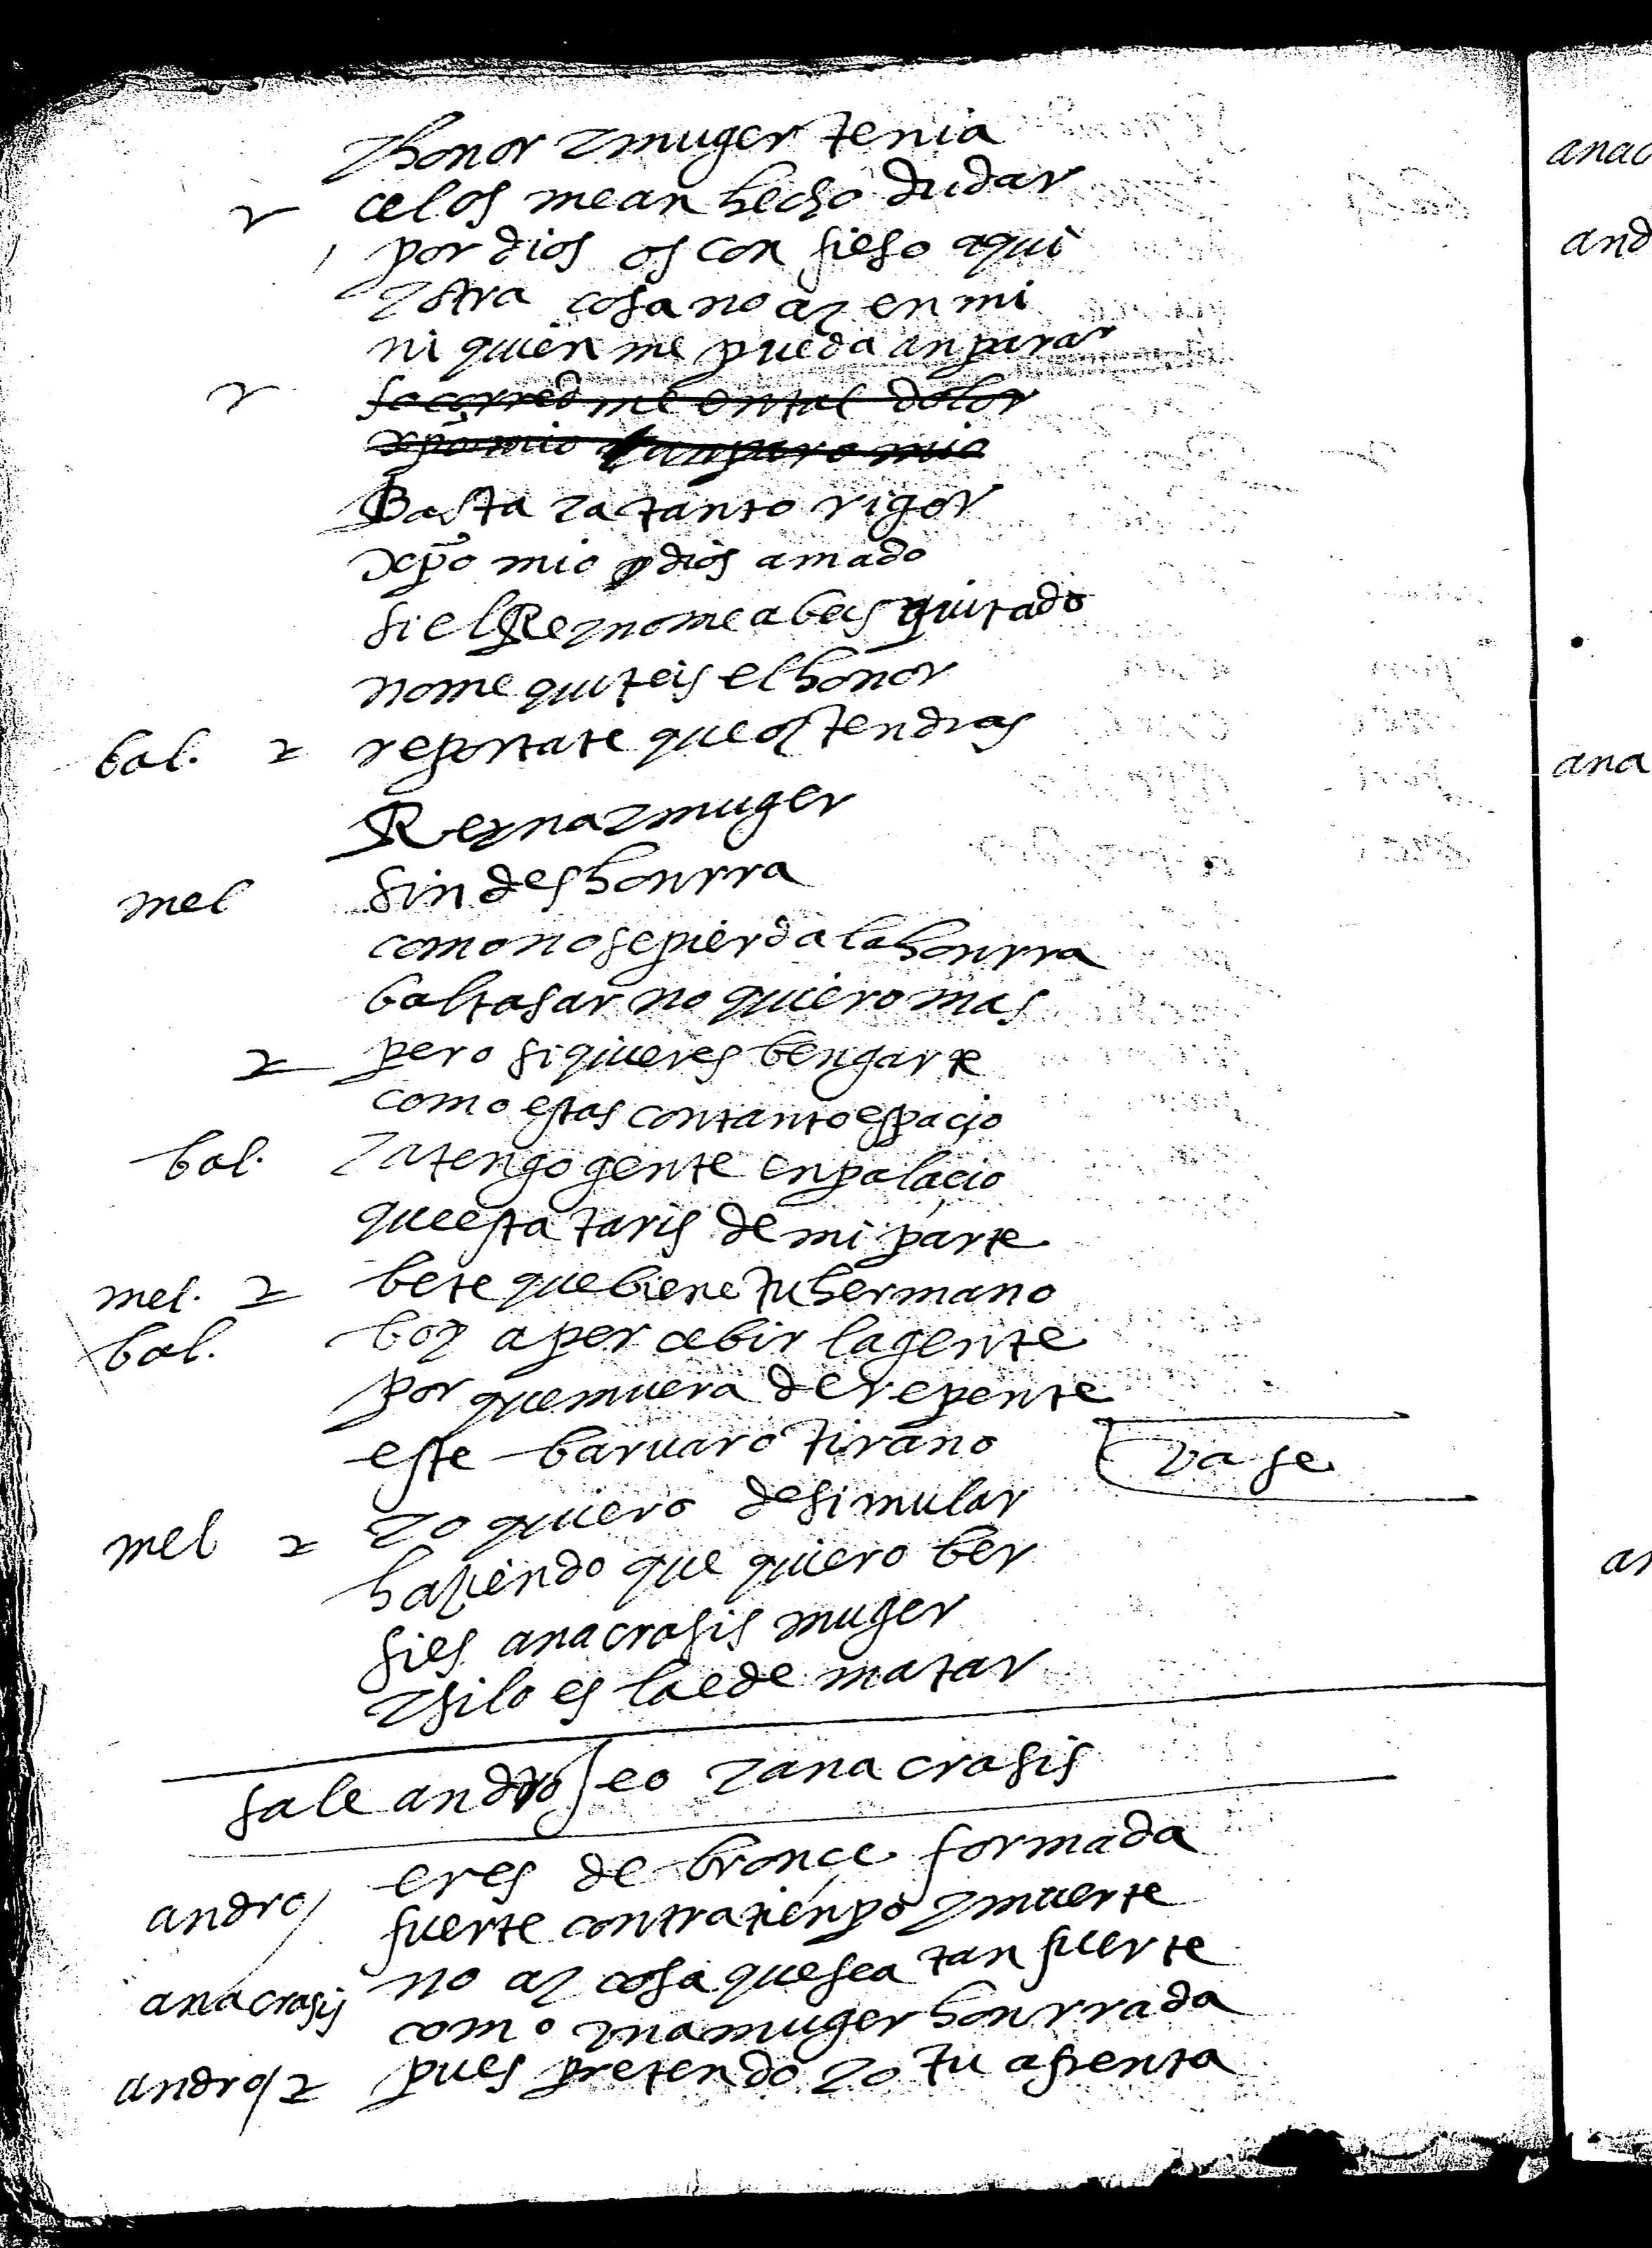 y honor y muger tenia
celos me an hecho dudar
por dios os confieso aqui
y otra cosa no ay en mi
ni quien me pueda anparar
socorredme en tal dolor
xpo mio y anparo mio
Basta ya tanto rigor
xpo mio y dios amado
si el Reyno me abeis quitado
no me quiteis el honor
bal. reportate que oy tendras
Reyna y muger
mel sin deshonrra
como no se pierda la honrra
baltasar no quiero mas
pero si quieres bengarte
como estas con tanto espaçio
bal. ya tengo gente en palaçio
que esta taris de mi parte
mel. bete que biene tu hermano
bal. boy a perçebir la gente
por que muera de repente
este barvaro tirano
vase
mel yo quiero desimular
haziendo que quiero ber
si es anacrasis muger
y si lo es la e de matar
sale androseo y anacrasis
andros eres de bronçe formada
fuerte contra tienpo y muerte
anacrasis no ay cosa que sea tan fuerte
como vna muger honrrada
andros pues pretendo yo tu afrenta
anac
and
ana
an